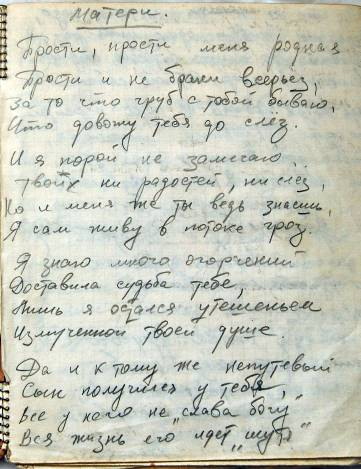 Матери.
Прости, прости меня родная
Прости и не брани всерьёз,
За то что груб с тобой бываю,
Что довожу тебя до слёз.
И я порой не замечаю,
Твоих ни радостей, ни слёз,
Но и меня же ты ведь знаешь,
Я сам живу в потоке гроз.
Я знаю много огорчений
Доставила судьба тебе,
Лишь я остался утешеньем
Измученной твоей душе.
Да и к тому же непутевый
Сын получился у тебя,
Все у него не „слава богу"
Вся жизнь его идет „шутя"